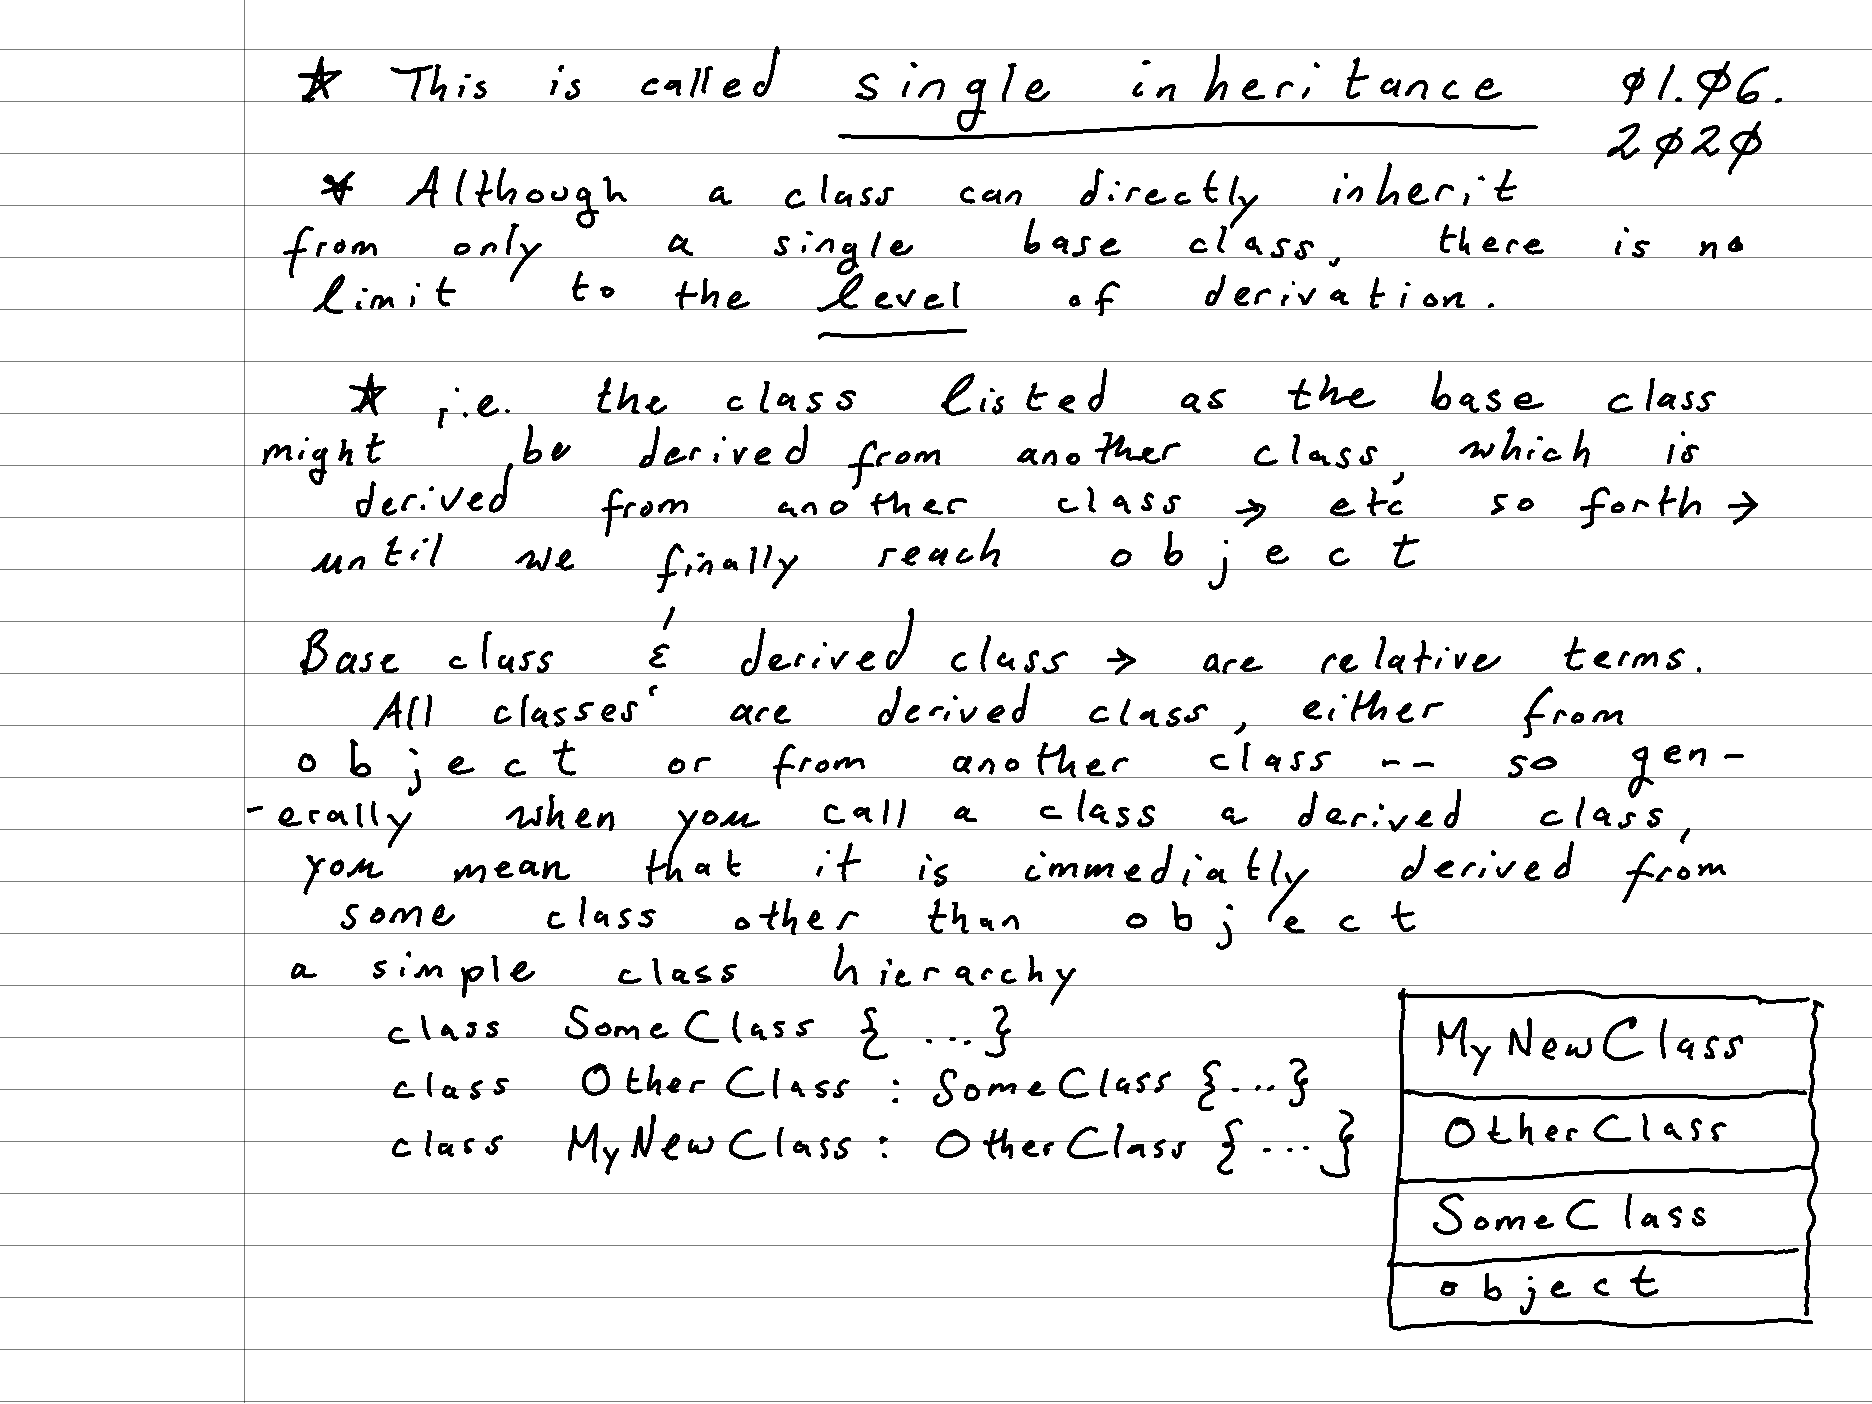 ☆ This is called single inheritance ø1.ø6.
2ø2ø
* Although a class can directly inherit
from only a single base class, there is no
limit to the level of derivation.
☆ i.e. the class listed as the base class
might be derived from another class, which is
derived from another class → etc so forth →
until we finally reach object
Base class & derived class → are relative terms.
All classes are derived class, either from
object or from another class -- so gen-
-erally when you call a class a derived class,
you mean that it is immediatly derived from
some class other than object
a simple class hierarchy
class SomeClass { ...}
class OtherClass : SomeClass {...}
class MyNewClass : OtherClass { ...}
MyNewClass
OtherClass
SomeClass
object